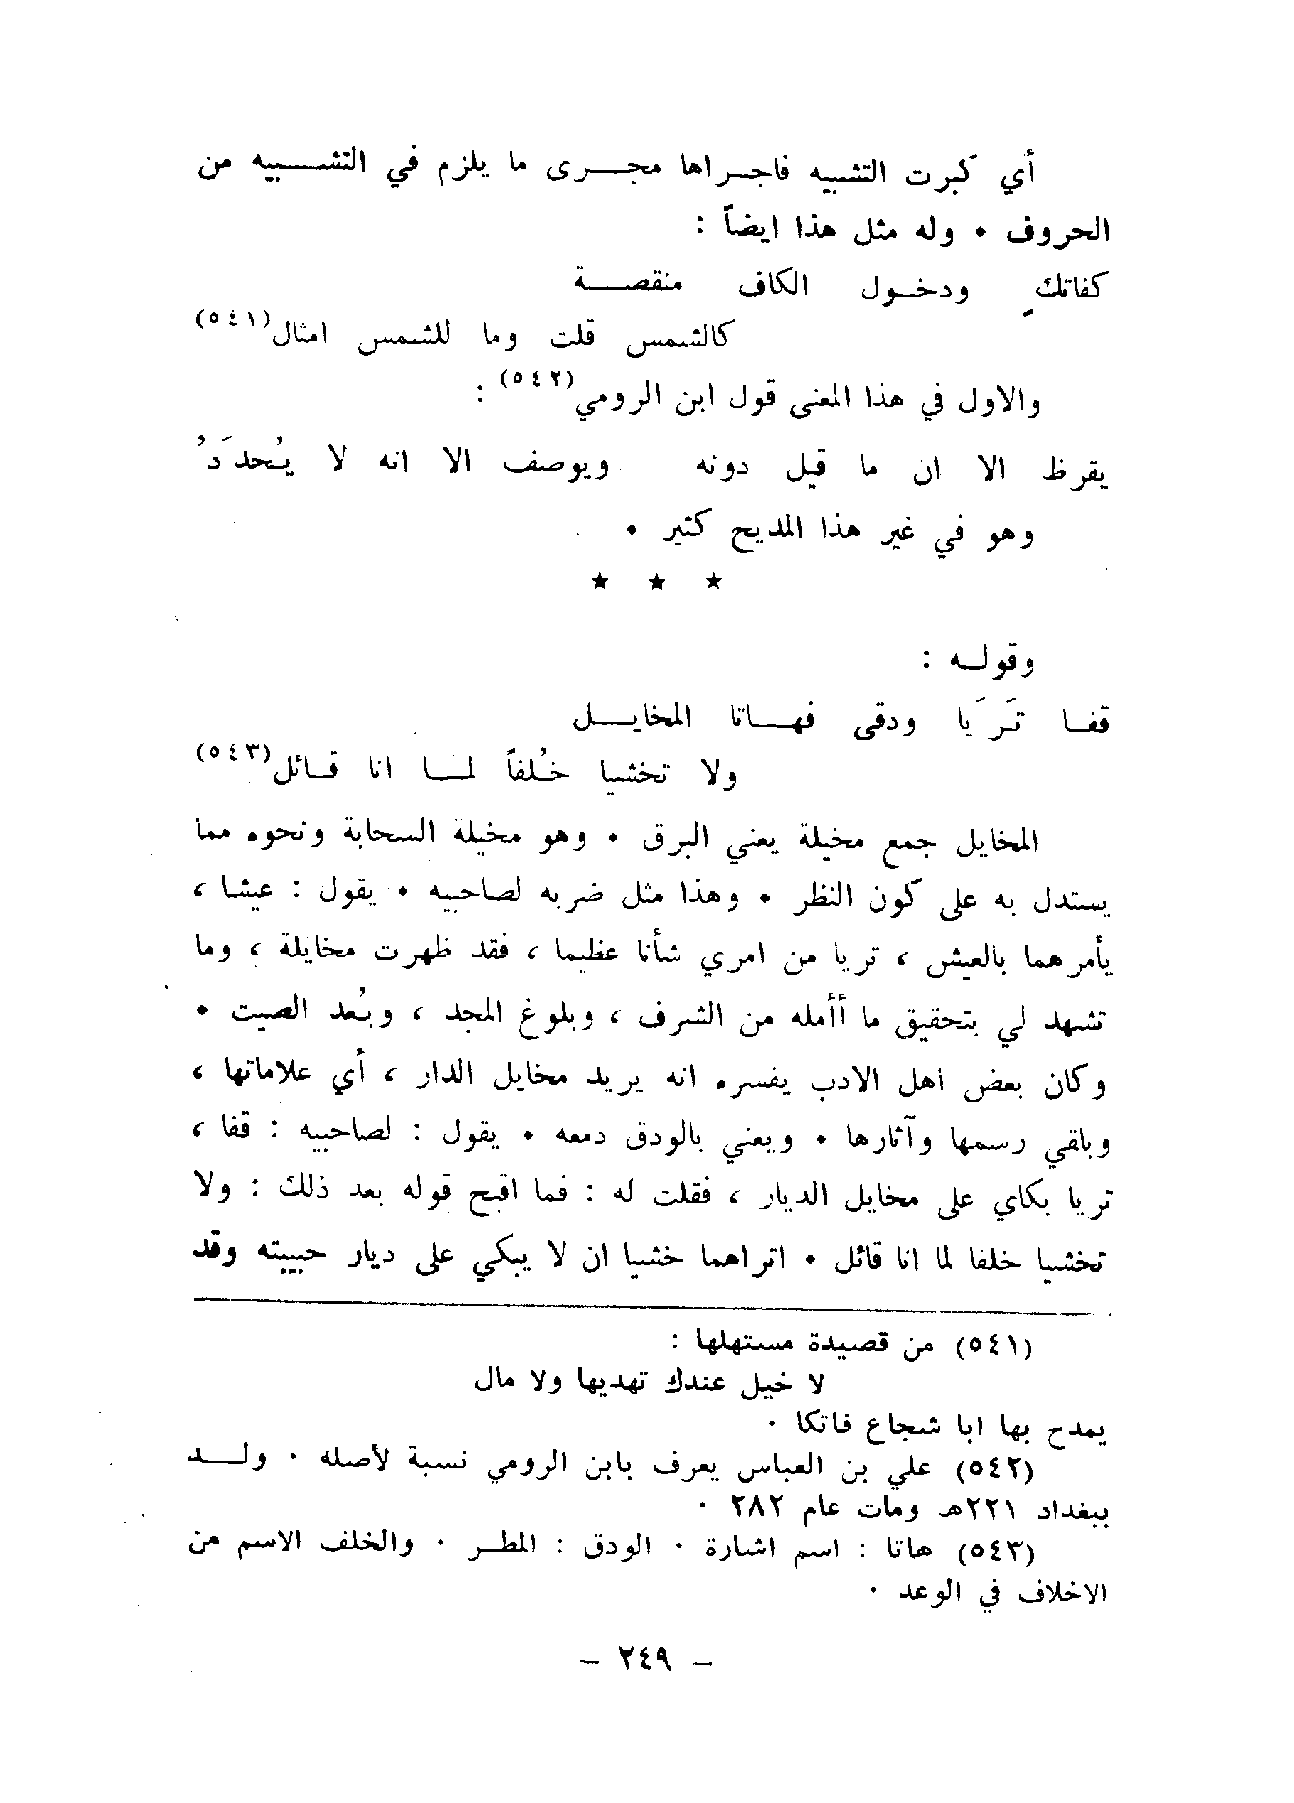 أي كبرت التشبيه فاجـراها مجـــرى ما يلزم في التشـــبيه من
الحروف • وله مثل هذا ايضاً :
كفاتكٍ ودخـول الكاف منقصـــة
كالشمس قلت وما للشمس امثال(٥٤١)
والاول في هذا المعنى قول ابن الرومي(٥٤٢) :
يقرظ الا ان ما قيل دونه ويوصف الا انه لا يُحدَدُ
وهو في غير هذا المديح كثير •
★ ★ ★
وقولـه :
قفـا تَرَيا ودقى فهـاتا المخايـــل
ولا تخشيا خُلفاً لمـا انا قـائل(٥٤٣)
المخايل جمع مخيلة يعني البرق • وهو مخيلة السحابة ونحوه مما
يستدل به على كون النظر • وهذا مثل ضربه لصاحبيه • يقول : عيشا ،
يأمرهما بالعيش ، تريا من امري شأنا عظيما ، فقد ظهرت مخايلة ، وما
تشهد لي بتحقيق ما أأمله من الشرف ، وبلوغ المجد ، وبُعد الصيت •
وكان بعض اهل الادب يفسره انه يريد مخايل الدار ، أي علاماتها ،
وباقي رسمها وآثارها • ويعني بالودق دمعه • يقول : لصاحبيه : قفا ،
تريا بكاي على مخايل الديار ، فقلت له : فما اقبح قوله بعد ذلك : ولا
تخشيا خلفا لما انا قائل • اتراهما خشيا ان لا يبكي على ديار حبيبته وقد
(٥٤١) من قصيدة مستهلها :
لا خيل عندك تهديها ولا مال
يمدح بها ابا شجاع فاتكا •
(٥٤٢) علي بن العباس يعرف بابن الرومي نسبة لأصله • ولـــد
ببغداد ٢٢١هـ ومات عام ٢٨٢ •
(٥٤٣) هاتا : اسم اشارة • الودق : المطـر • والخلف الاسم من
الاخلاف في الوعد •
– ٢٤٩ –